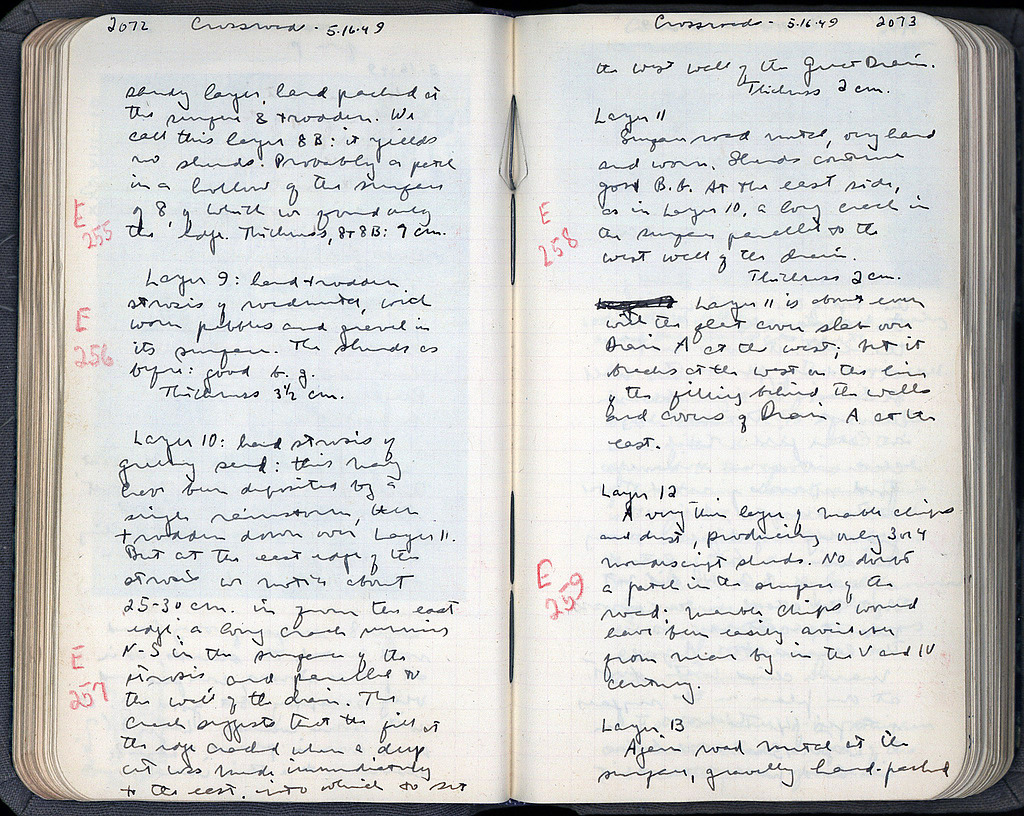 2072 Crossroad - 5.16.49
sandy layer, hard packed at
the surface & trodden. We
call this layer 8B: it yields
no sherds. Probably a patch
in a hollow of the surface
of 8, of which we found only
the edge. Thickness, 8+8B: 9 cm.
E
255
Layer 9: hard trodden
strosis of roadmetal, with
worn pebbles and gravel in
its surface. The sherds as
before: good b. g.
Thickness 3½ cm.
E
256
Layer 10: hard strosis of
gravelly sand: this may
have been deposited by a
single rainstorm, then
trodden down over Layer 11.
But at the east edge of the
strosis we notice about
25-30 cm. in from the east
edge: a long crack running
N-S in the surface of the
strosis and parallel to
the wall of the drain. This
crack suggests that the fill at
the edge cracked when a deep
cut was made immediately
to the east, into which to set
E
257
Crossroad - 5.16.49 2073
the west wall of the Great Drain.
Thickness 2 cm.
Layer 11
Surface road metal, very hard
and worn. Sherds continue
good B.G. At the east side,
as in Layer 10, a long crack in
the surface parallel to the
west wall of the drain.
Thickness 2 cm.
E
258
Layer 11 is about even
with the flat cover slab over
Drain A at the west; but it
breaks at the west on the line
of the filling behind the walls
and covers of Drain A at the
east.
Layer 12
A very thin layer of marble chips
and dust, producing only 3 or 4
nondescript sherds. No doubt
a patch in the surface of the
road; marble chips would
have been easily available
from near by in the V and IV
century.
E
259
Layer 13
Again road metal at the
surface, gravelly hard-packed